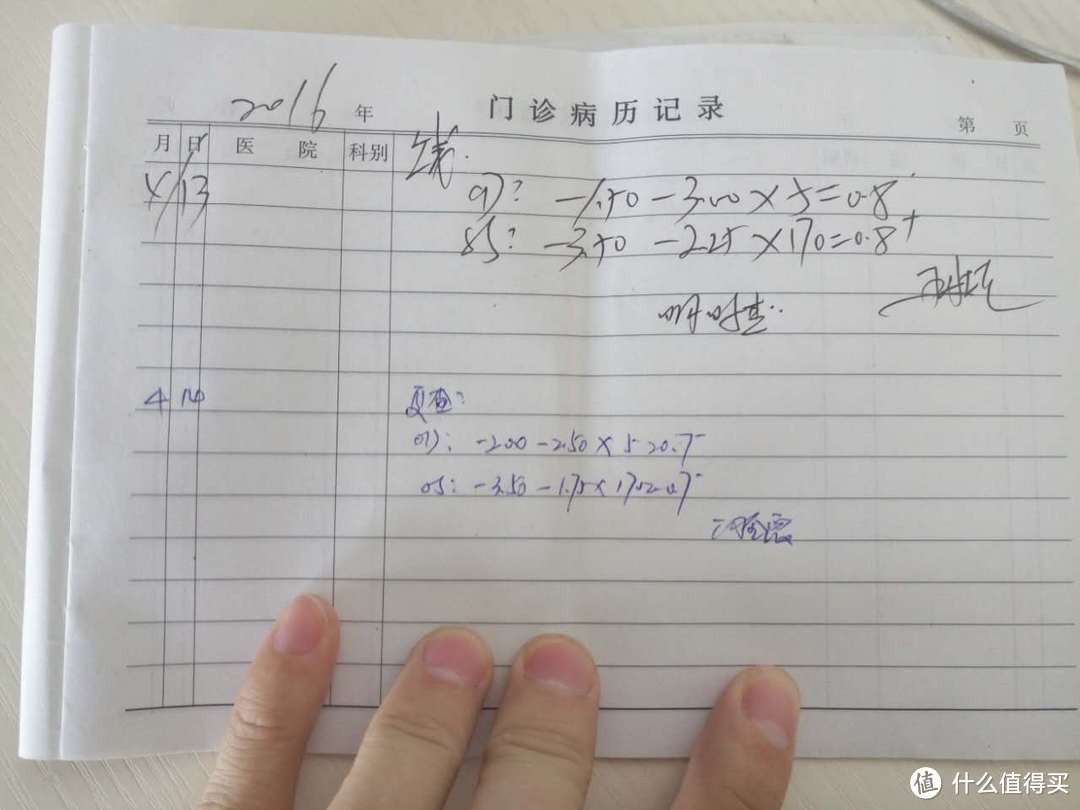 门诊病历记录
2016 年
第 页
月 日 医 院 科别
4/13
OD: -1.50 -3.00 × 5 = 0.8
OS: -3.50 -2.25 × 170 = 0.8+
明日查
4 14 复查:
OD: -2.00 -2.50 × 5
OS: -3.50 -1.75 × 170
值 什么值得买